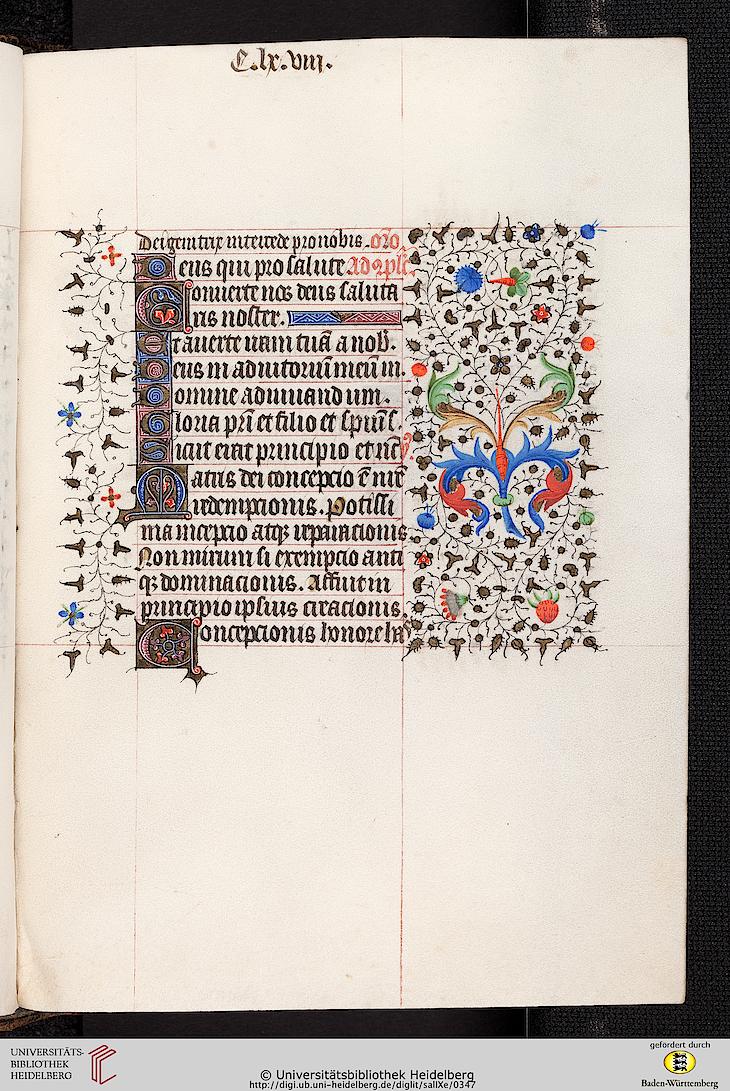 C.lx.viij.
Dei genitrix intercede pro nobis. oro.
Deus qui pro salute Ad
Conuerte nos deus saluta
ris noster.
Et auerte iram tuā a nob̄.
Deus in adiutoriū meū in.
Domine adiuuand um.
Gloria pr̄i et filio et spiūs.
Sicut erat principio et nc̄
Matris dei concepcio ē nr̄e
redempcionis. Potissi
ma incepcio atqꝫ reparacionis
Non mirum si exempcio anti
qꝫ dominacionis. Affuit in
principio ipsius creacionis.
Concepcionis honore ha
UNIVERSITÄTS-
BIBLIOTHEK
HEIDELBERG
© Universitätsbibliothek Heidelberg
http://digi.ub.uni-heidelberg.de/diglit/salIXe/0347
gefördert durch
Baden-Württemberg